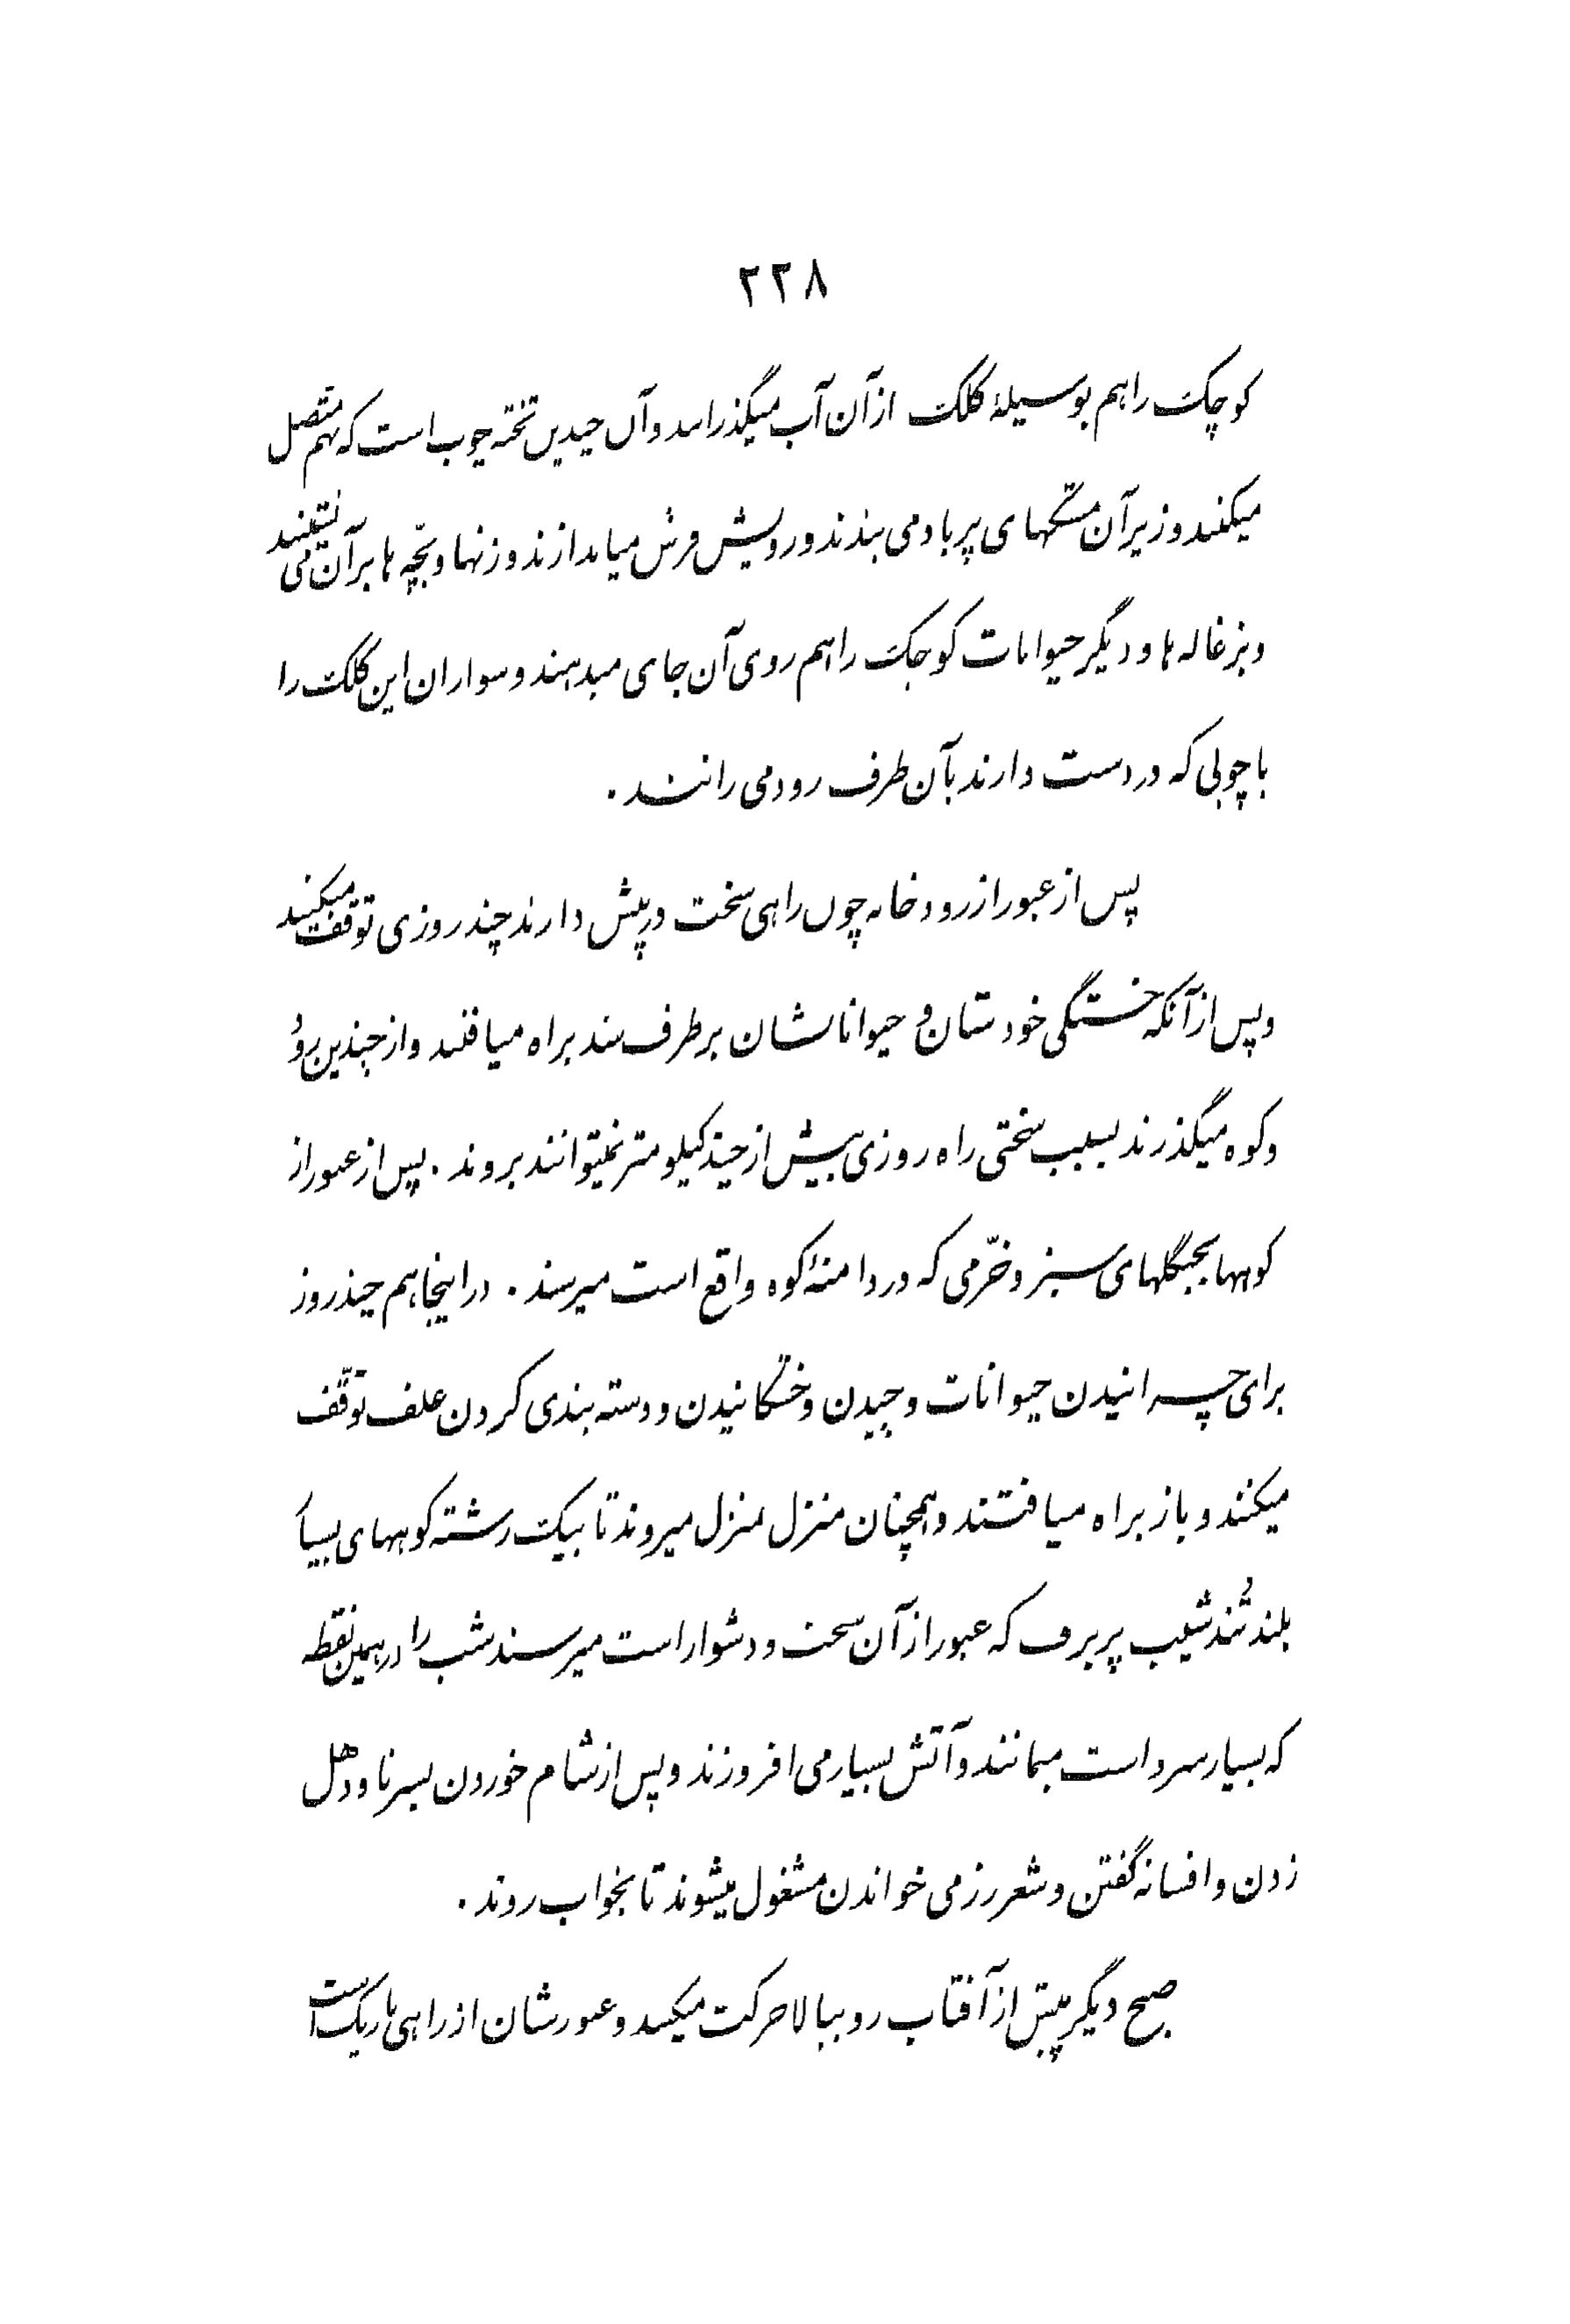 ۲۲۸
کوچک را هم بوسیلهٔ کلک از آن آب میگذرانند و آن چندین تخته چوب است که بهم متصل
میکنند و زیر آن مشکهای پر باد می بندند و رویش فرش میاندازند و زنها و بچّه ها بر آن می نشینند
و بزغاله ها و دیگر حیوانات کوچک را هم روی آن جای میدهند و سواران این کلک را
با چوبی که در دست دارند بآن طرف رود می رانند .
پس از عبور از رودخانه چون راهی سخت در پیش دارند چند روزی توقف میکنند
و پس از آنکه خستگی خودشان و حیواناتشان برطرف شد براه میافتند و از چندین رود
و کوه میگذرند بسبب سختی راه روزی بیش از چند کیلومتر نمیتوانند بروند . پس از عبور از
کوهها بجنگلهای سبز و خرّمی که در دامنهٔ کوه واقع است میرسند . در اینجا هم چند روز
برای چرانیدن حیوانات و چیدن و خشکانیدن و دسته بندی کردن علف توقّف
میکنند و باز براه میافتند و همچنان منزل بمنزل میروند تا بیک رشته کوههای بسیار
بلند تُند شیب پر برف که عبور از آن سخت و دشوار است میرسند شب را در همین نقطه
که بسیار سرد است میمانند و آتش بسیار می افروزند و پس از شام خوردن بسرنا و دهل
زدن و افسانه گفتن و شعر رزمی خواندن مشغول میشوند تا بخواب روند .
صبح دیگر پیش از آفتاب رو ببالا حرکت میکنند و عبورشان از راهی باریک است